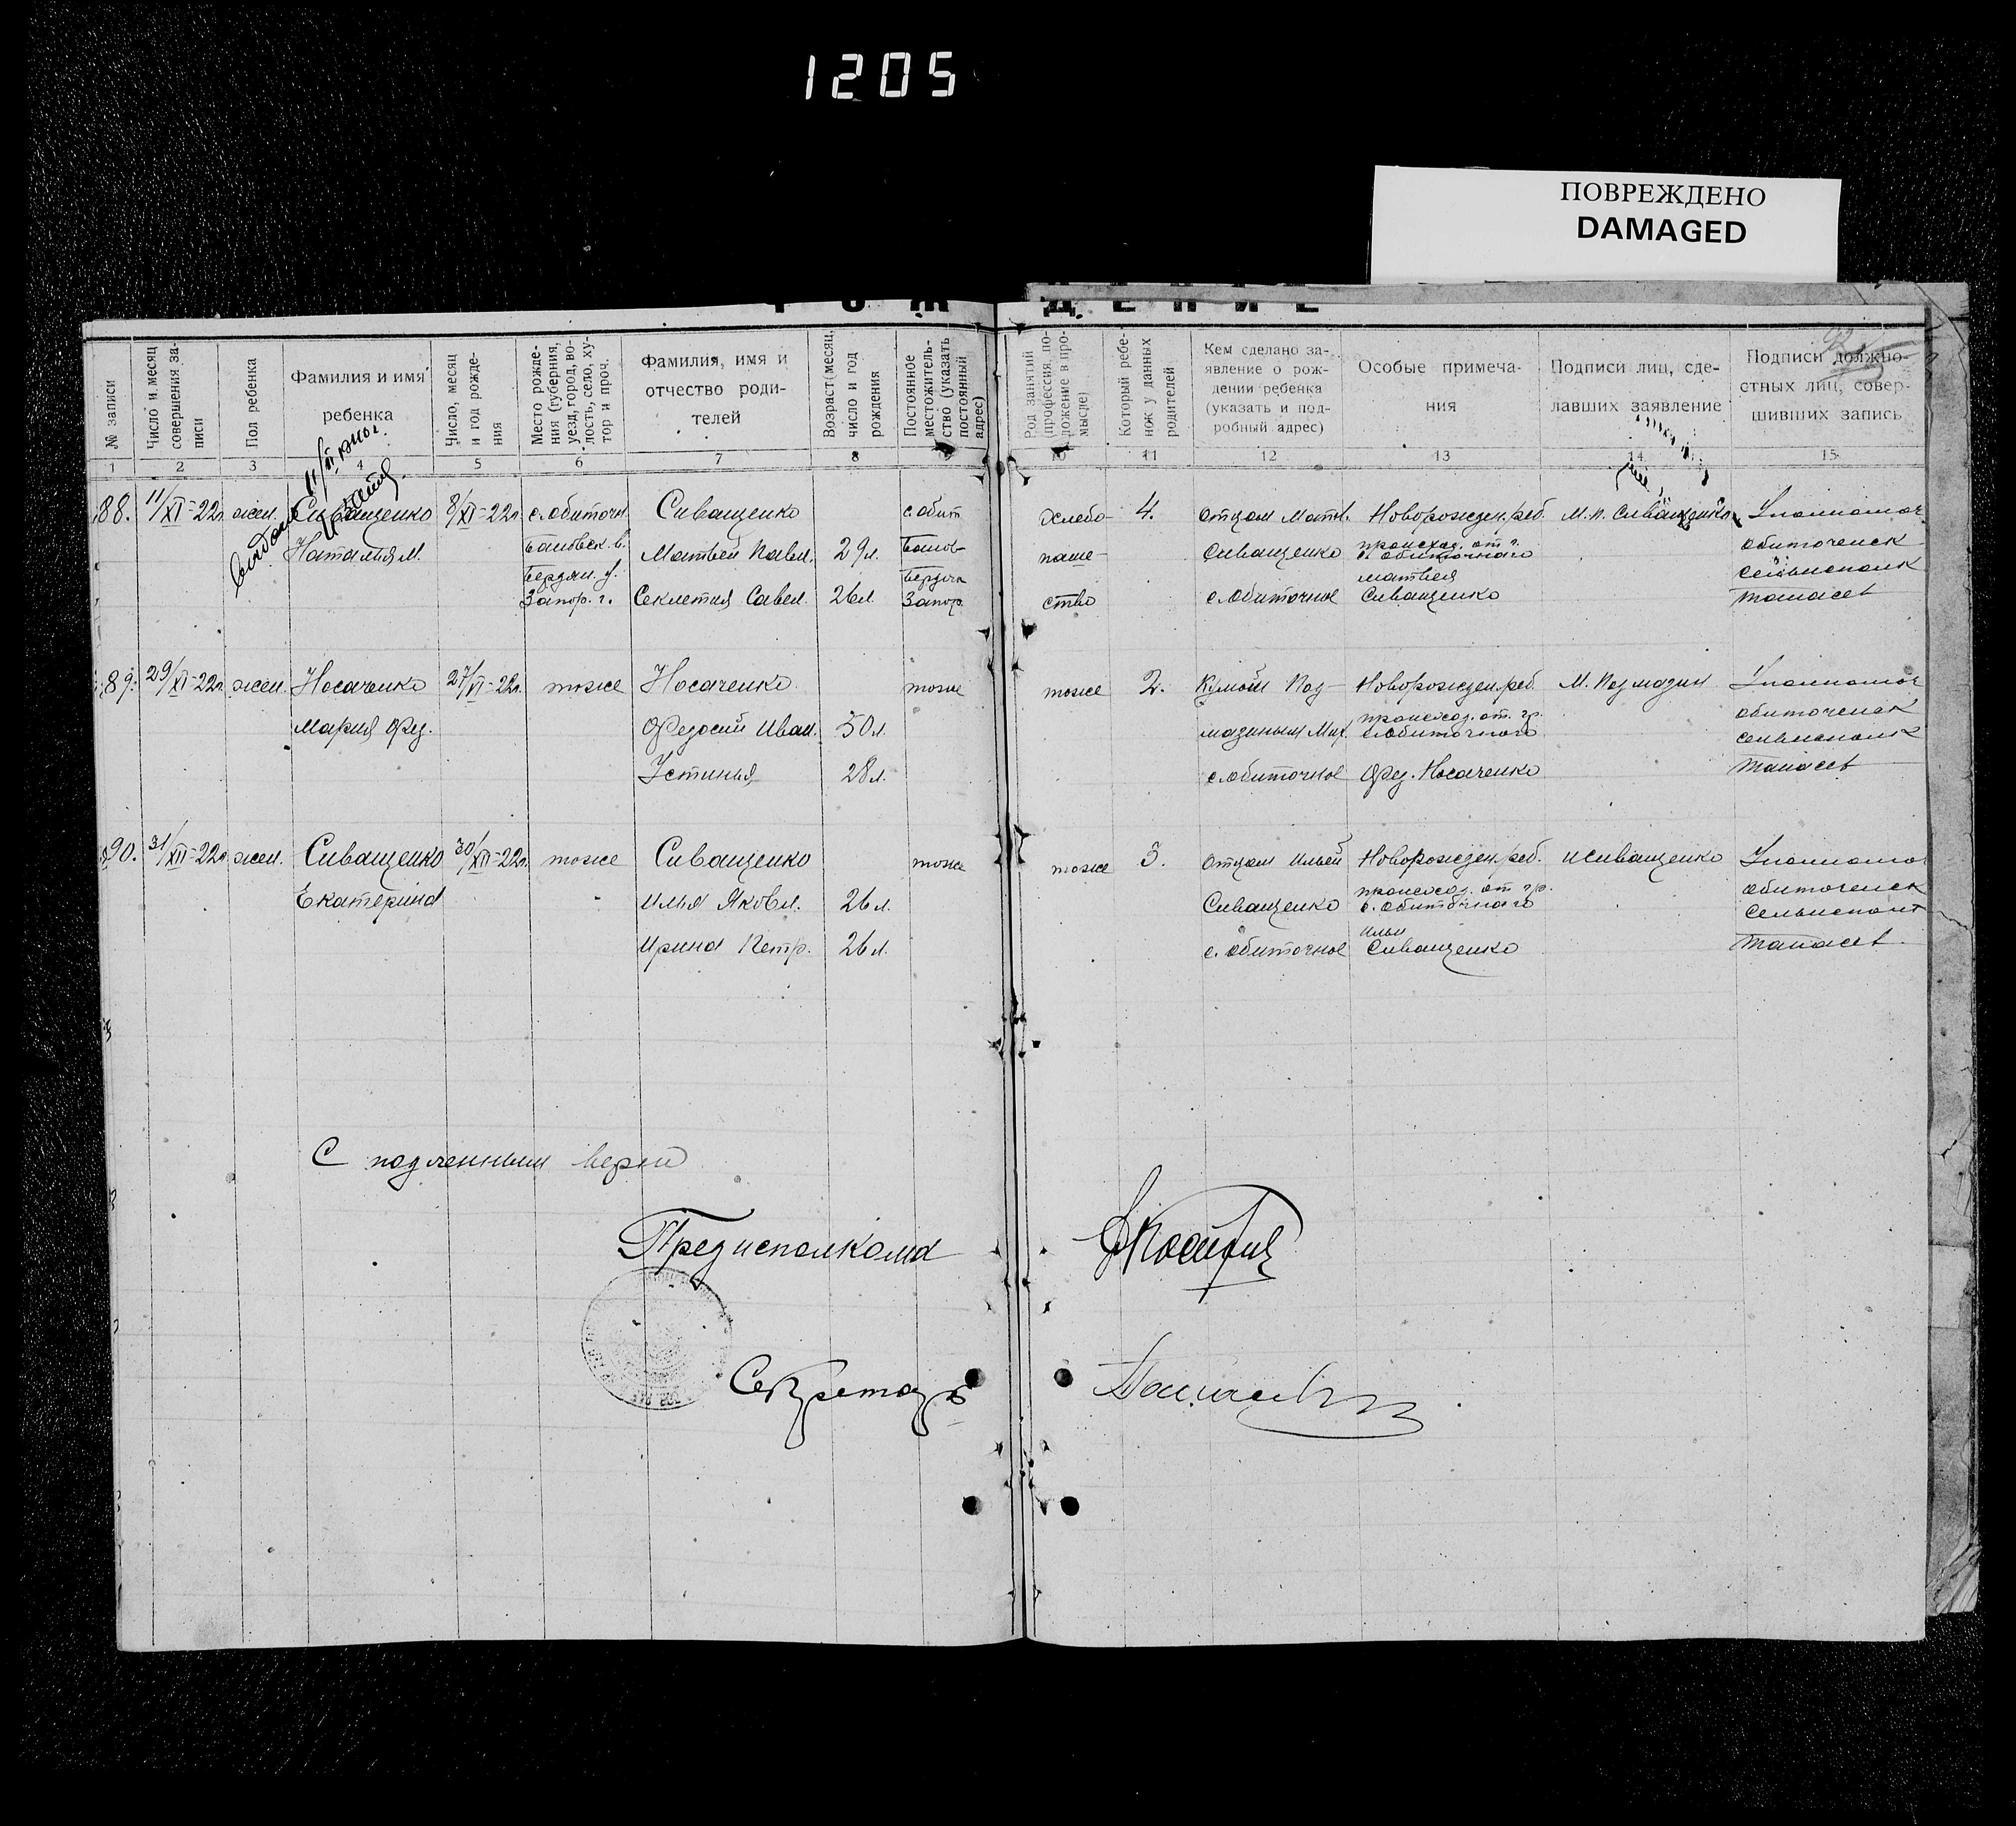 1205
ПОВРЕЖДЕНО
DAMAGED
РОЖДЕНИЕ
№ записи
Число и месяц совершения записи
Пол ребенка
Фамилия и имя ребенка
Число, месяц и год рождения
Место рождения (губерния, уезд, город, волость, село, хутор и проч.
Фамилия, имя и отчество родителей
Возраст (месяц, число и год рождения
Постоянное местожительство (указать постоянный адрес)
Род занятий (профессия, положение в промысле)
Который ребенок у данных родителей
Кем сделано заявление о рождении ребенка (указать и подробный адрес)
Особые примечания
Подписи лиц, сделавших заявление
Подписи должностных лиц, совершивших запись
1 2 3 4 5 6 7 8 9 10 11 12 13 14 15
88. 11/XI-22г. жен. Сиващенко 8/XI-22г. с. обиточн. Сиващенко с обит хлебо- 4. отцом Матв. Новорожден. реб. М. п. Сиващенко
Наталья М. Бановск. в. Матвей Павл. 29л. Банов паше- Сиващенко происход. от г. обиточенск
с. обиточного
Бердян. у. Бердян матвея сельисполк
Запор. г. Секлетия Савел. 26л. Запор. ство с. обиточное Сиващенко
89. 29/XI-22г. жен. Носаченко 27/XI-22г. тоже Носаченко тоже тоже 2. Кумом Поз- Новорожден. реб. М. Позмазин
Мария Фед. Федосий Иван. 30л. мазиным Мих. происход. от. гр. обиточенск
с обиточного сельисполк
Устинья 28л. с обиточное Фед. Носаченко
90. 31/XII-22г. жен. Сиващенко 30/XII-22г. тоже Сиващенко тоже тоже 3. отцом Ильей Новорожден. реб. И Сиващенко
Екатерина Илья Яковл. 26л. Сиващенко происход. от гр. обиточенск
с. обиточного сельисполк
Ирина Петр. 26л. с. обиточное Ильи
Сиващенко
С подленным верно
Предисполкома
Секретарь